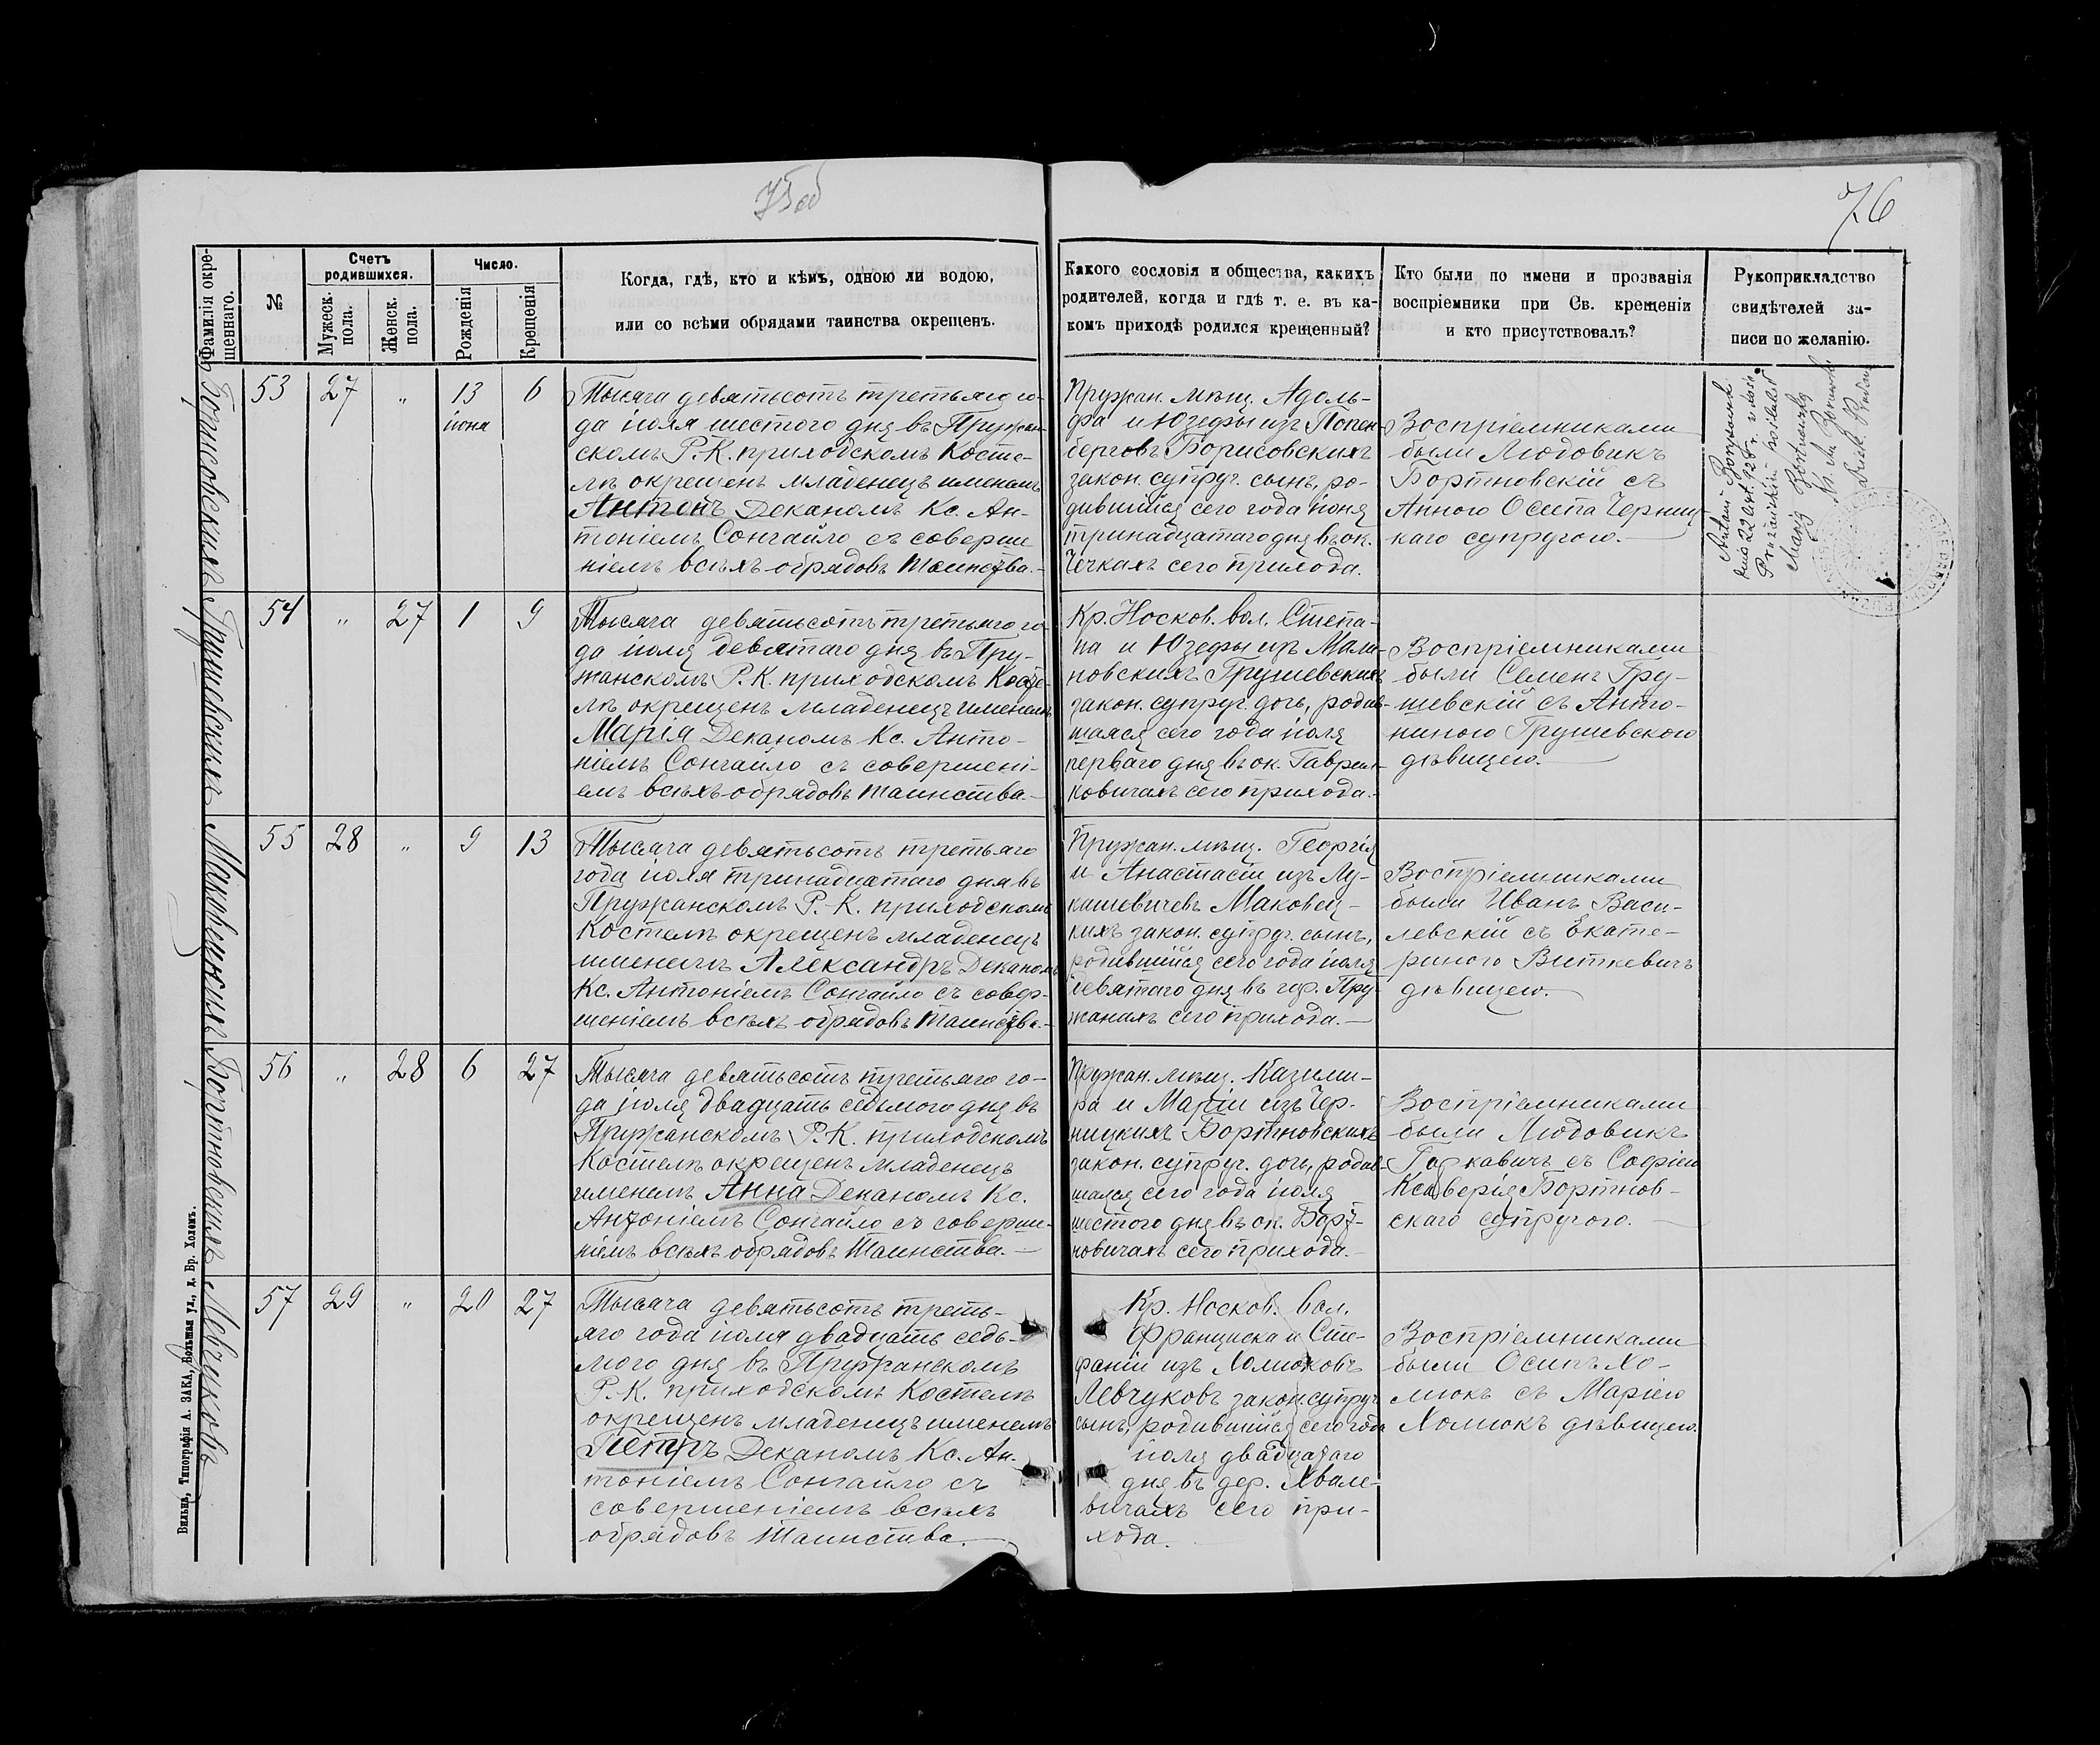 75об
76
Фамилія окре-
щеннаго.
№
Счетъ
родившихся.
Мужеск.
пола.
Женск.
пола.
Число.
Рожденія
Крещенія
Когда, гдѣ, кто и кѣмъ, одною ли водою,
или со всѣми обрядами таинства окрещенъ.
Какого сословія и общества, какихъ
родителей, когда и гдѣ т. е. въ ка-
комъ приходѣ родился крещенный?
Кто были по имени и прозванія
воспріемники при Св. крещеніи
и кто присутствовалъ?
Рукоприкладство
свидѣтелей за-
писи по желанію.
Борисовскихъ
53 27 " 13 6
іюня
Тысяча девятьсотъ третьяго го-
да іюля шестого дня въ Пружан-
скомъ Р.-К. приходскомъ Косте-
лѣ окрещенъ младенецъ именемъ
Антонъ Деканомъ Кс. Ан-
тоніемъ Сонгайло съ соверше
ніемъ всѣхъ обрядовъ Таинства.-
Пружан. мѣщ. Адоль-
фа и Юзефы изъ Попен-
берговъ Борисовскихъ
закон. супруг. сынъ, ро-
дившійся сего года іюня
тринадцатаго дня въ ок.
Чечкахъ сего прихода.
Воспріемниками
были Людовикъ
Бортновскій съ
Анною Осипа Черниц
каго супругою.-
Грушевскихъ
54 " 27 1 9
Тысяча девятьсотъ третьяго го-
да іюля девятаго дня въ Пру-
жанскомъ Р.К. приходскомъ Косте-
лѣ окрещенъ младенецъ именемъ
Марія Деканомъ Кс. Анто-
ніемъ Сонгайло съ совершені-
емъ всѣхъ обрядовъ Таинства.-
Кр. Носков. вол. Степа-
на и Юзефы изъ Мали-
новскихъ Грушевскихъ
закон. супруг. дочь, родив-
шаяся сего года іюля
перваго дня въ ок. Гаврил-
ковичахъ сего прихода.-
Воспріемниками
были Семенъ Гру-
шевскій съ Анто-
ниною Грушевскою
дѣвицею.-
Маковецкихъ
55 28 " 9 13
Тысяча девятьсотъ третьяго
года іюля тринадцатаго дня въ
Пружанскомъ Р.-К. приходскомъ
Костелѣ окрещенъ младенецъ
именемъ Александръ Деканомъ
Кс. Антоніемъ Сонгайло съ совер-
шеніемъ всѣхъ обрядовъ Таинства.-
Пружан. мѣщ. Георгія
и Анастасіи изъ Лу-
кашевичевъ Маковец-
кихъ закон. супруг. сынъ,
родившійся сего года іюля
девятаго дня въ гор. Пру-
жанахъ сего прихода.-
Воспріемниками
были Иванъ Васи-
левскій съ Екате-
риною Виткевичъ
дѣвицею.
Бортновскихъ
56 " 28 6 27
Тысяча девятьсотъ третьяго го-
да іюля двадцать седьмого дня въ
Пружанскомъ Р.К. приходскомъ
Костелѣ окрещенъ младенецъ
именемъ Анна Деканомъ Кс.
Антоніемъ Сонгайло съ соверше-
ніемъ всѣхъ обрядовъ Таинства.-
Пружан. мѣщ. Казими-
ра и Маріи изъ Чер-
ницкихъ Бортновскихъ
закон. супруг. дочь, родив-
шаяся сего года іюля
шестого дня въ ок. Борт-
новичахъ сего прихода.-
Воспріемниками
были Людовикъ
съ Софіею
Ксаверія Бортнов-
скаго супругою.-
Левчуковъ
57 29 " 20 27
Тысяча девятьсотъ треть-
яго года іюля двадцать седь-
мого дня въ Пружанскомъ
Р.-К. приходскомъ Костелѣ
окрещенъ младенецъ именемъ
Петръ Деканомъ Кс. Ан-
тоніемъ Сонгайло съ
совершеніемъ всѣхъ
обрядовъ Таинства.-
Кр. Носков. вол.
Франциска и Сте-
фаніи изъ Холюковъ
Левчуковъ закон. супруг
сынъ, родившійся сего года
іюля двадцатаго
дня въ дер. Хвале-
вичахъ сего при-
хода.
Воспріемниками
были Осипъ Хо-
люкъ съ Маріею
Холюкъ дѣвицею.
Вильна, Типографія А. ЗАКА, Большая ул., д. Бр. Холемъ.